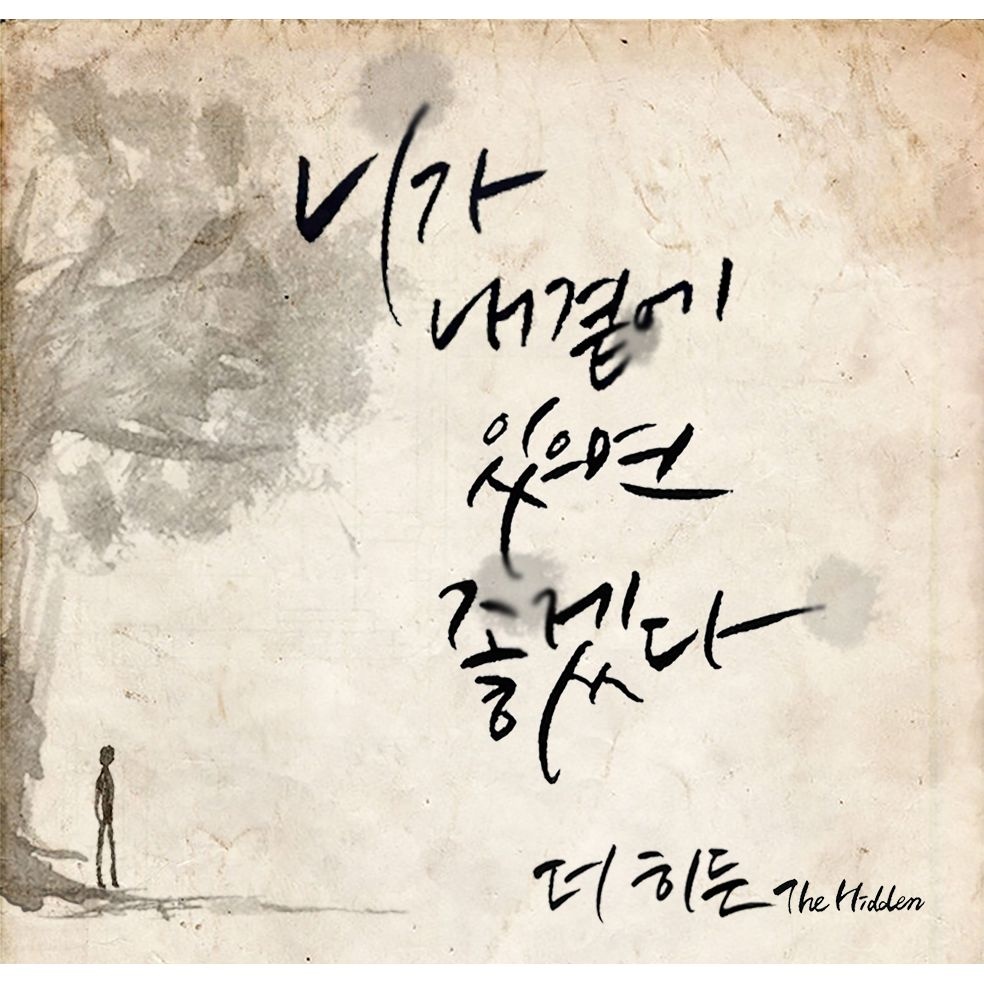 니가
내 곁에
있으면
좋겠다
더 히든 The Hidden